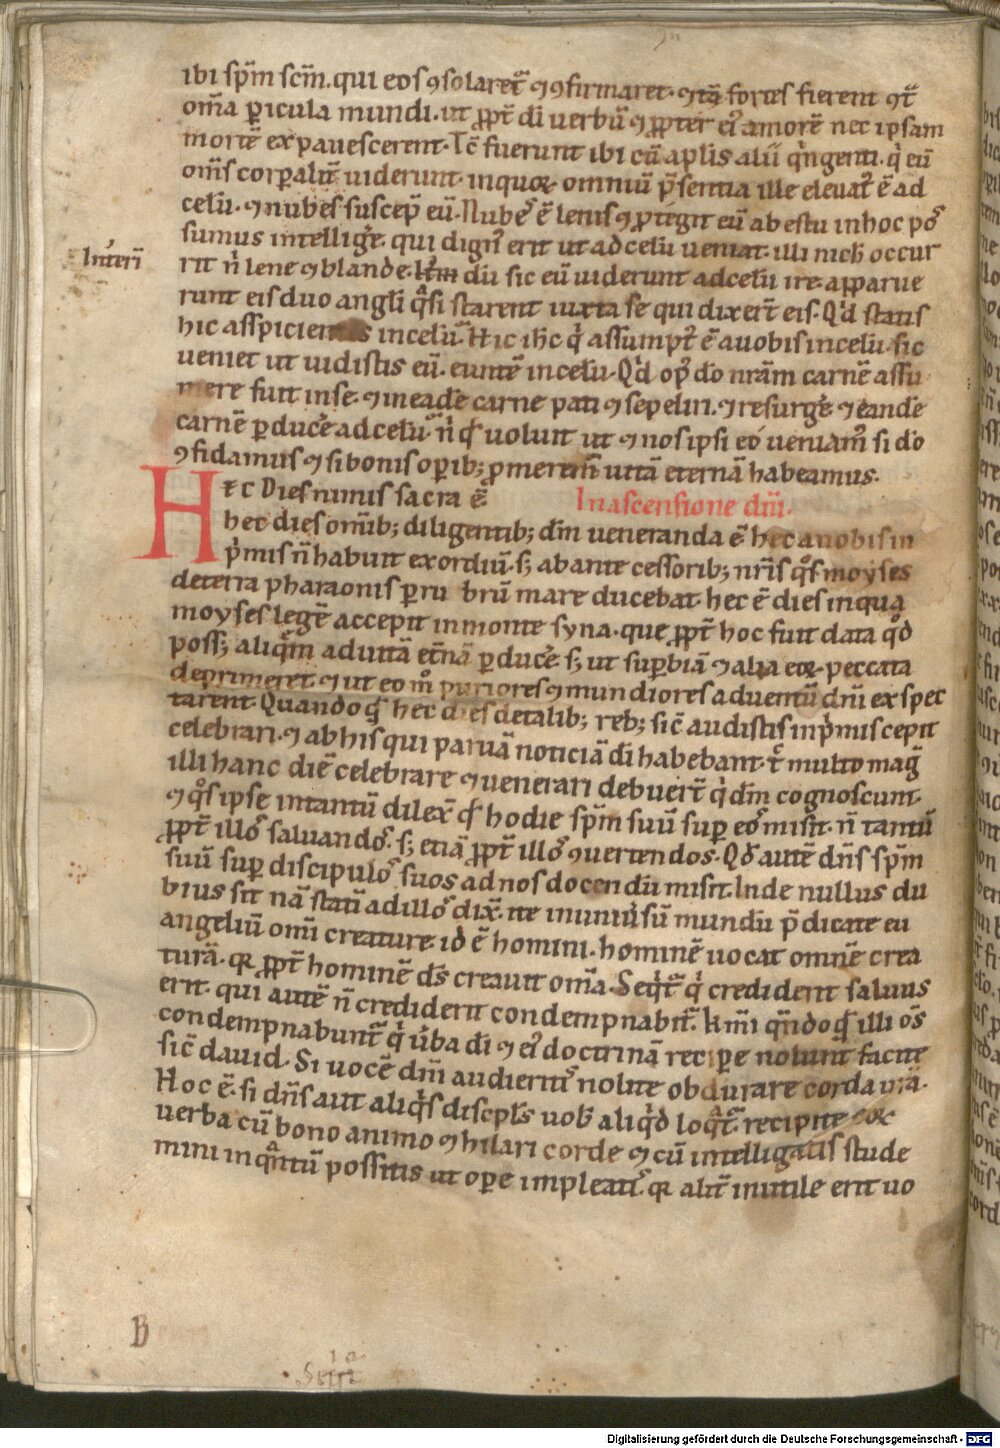 ibi sp̄m sc̄m. qui eos ꝯsolaret᷑ ⁊ ꝯfirmaret. ⁊ itaꝫ fortes fierent ꝯt᷑
om̄a ꝑicula mundi. ut ꝓpt̄ dī uerbū ⁊ ꝓpter eiꝰ amorē nec ipsam
mortē expauescerent. Ic̄ fuerunt ibi cū apl̄is alii q̇ngenti. q̇ eū
om̄s corꝑalit᷑ uiderunt. inquoꝝ omniū p̄sentia ille eleuatꝰ ē ad
celū. ⁊ nubes suscep̄ eū. Nubeſ ē lenis ⁊ ꝓtegit eū ab estu inhoc poſ
sumus intellige᷑. qui dignꝰ erit ut adcelū ueniat. illi nich̄ occur
Int̄erī
rit n̄ lene ⁊ blande. dū sic eū uiderunt adcelū ire. apparue
runt eis duo angl̄i q̄si starent iuxta se qui dixer̄t eis. Qͥd statis
hic asspicientes incelū. Hic ih̄c q̇ assumptꝰ ē auobis incelū. sic
ueniet ut uidistis eū. euntē incelū. Qͥd opꝰ d̄o nrām carnē assu
mere fuit inse. ⁊ ineadē carne pati ⁊ sepeliri. ⁊ resurge᷑ ⁊ eandē
carnē ꝑduce᷑ adcelū. n̄ qd̄ uoluit ut ⁊ nos ipsi eo ueniamꝰ si do
ꝯfidamus ⁊ si bonis oꝑibꝫ ꝓmerim̄ uitā eternā habeamus.
Hec Dies nimis sacra ē
In ascensione dn̄i.
hec dies om̄ibꝫ diligentibꝫ dm̄ ueneranda ē hec anobis in
ṗmis n̄ habuit exordiū. sꝫ ab ante cessoribꝫ nr̄is qͦs moyses
deterra pharaonis ꝑ ru brū mare ducebat. hec ē dies inqua
moyses legē accepit inmonte syna. que ꝓpt̄ hoc fuit data qͦd
possꝫ aliq̄m aduitā et̄nā ꝑduce᷑. sꝫ ut suꝑbiā ⁊ alia eoꝝ peccata
deprimeret. ⁊ ut eo mͦ puriores ⁊ mundiores aduentū dn̄i exspec
tarent. Quandoqd̄ hec dies detalibꝫ rebꝫ sic̄ audistis inṗmis cepit
celebrari. ⁊ abhis qui paruā noticiā dī habebant. t᷑ multo mag̃
illi hanc diē celebrare ⁊ uenerari debuer̄t q̇ dm̄ cognoscunt.
⁊ qͦs ipse intantū dilex̄ qd̄ hodie sp̄m suū suꝑ eoſ misit. n̄ tantū
ꝓpt̄ illoſ saluandoſ. sꝫ etiā ꝓpt̄ illoſ ꝯuertendos. Qͦd autē dn̄s sp̄m
suū suꝑ discipuloſ suos ad nos docendū misit. Inde nullus du
bius sit nā statī adilloſ dix̄. ite inuniu̇sū mundū p̄dicate eu
angeliū omī creature. id ē homini. hominē uocat omnē crea
turā. qꝛ ꝓpt̄ hominē ds̄ creauit om̄a. Seqͥt᷑ q̇ crediderit saluus
erit. qui autē n̄ crediderit condempnabit᷑. Km̄i qn̄doqd̄ illi oſ
condempnabunt᷑ q̇ u̇ba dī ⁊ eiꝰ doctrinā reciꝑe nolunt facite
sic̄ dauid. Si uocē dn̄i audieritꝭ nolite obdurare corda ur̄a.
Hoc ē. si dn̄s aut aliqͥs discipl̄s uob̄ aliqͥd loqͥt᷑. recipite eoꝝ
uerba cū bono animo ⁊ hilari corde ⁊ cū intelligatis stude
mini inqͣntū possitis ut oꝑe impleatꝭ. qꝛ alit᷑ inutile erit uo
B
Digitalisierung gefördert durch die Deutsche Forschungsgemeinschaft - DFG